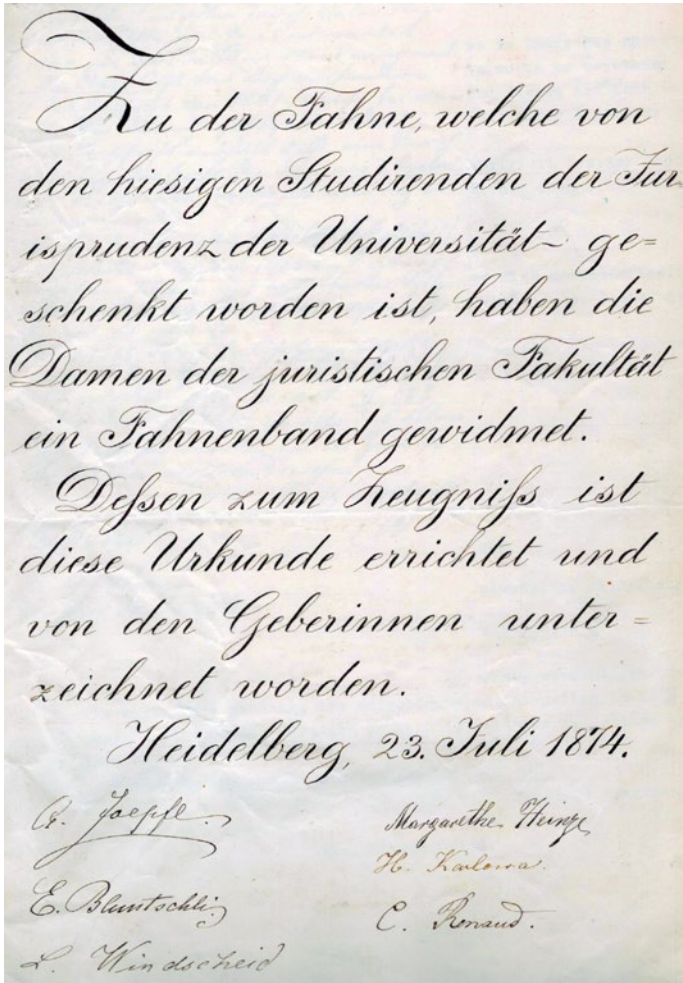 Zu der Fahne, welche von
den hiesigen Studirenden der Jur
isprudenz der Universität ge=
schenkt worden ist, haben die
Damen der juristischen Fakultät
ein Fahnenband gewidmet.
Deſsen zum Zeugniſs ist
diese Urkunde errichtet und
von den Geberinnen unter=
zeichnet worden.
Heidelberg, 23. Juli 1874.
Zoepfl. Margarethe Heinze
H. Karlowa.
E. Bluntschli C. Renaud.
L. Windscheid